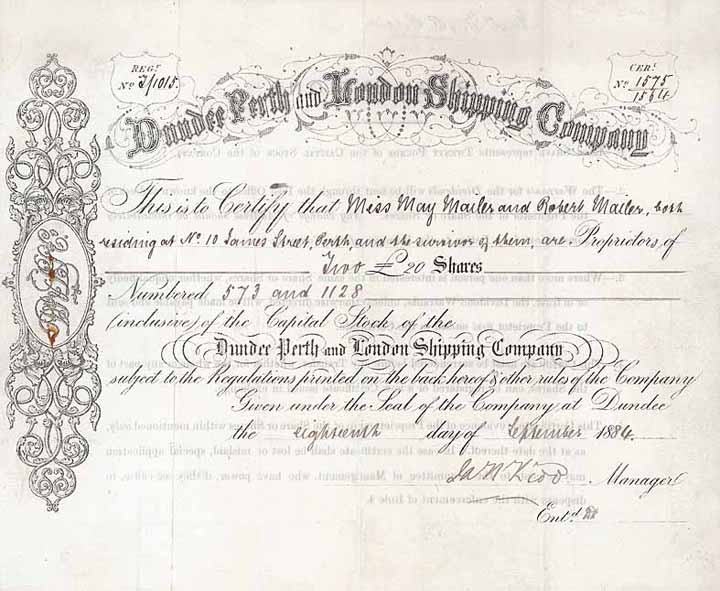 REG.
No 3/1015.
CER.
No 1575
1564
Dundee Perth and London Shipping Company
This is to Certify that Miss May Mailer and Robert Mailer, both
residing at No 10 James Street, Perth, and the survivor of them, are Proprietors of
Two £ 20 Shares
Numbered 573 and 1128
(inclusive) of the Capital Stock of the
Dundee Perth and London Shipping Company
subject to the Regulations printed on the back hereof & other rules of the Company
Given under the Seal of the Company at Dundee
the eighteenth day of September 1884.
Manager
Entd.